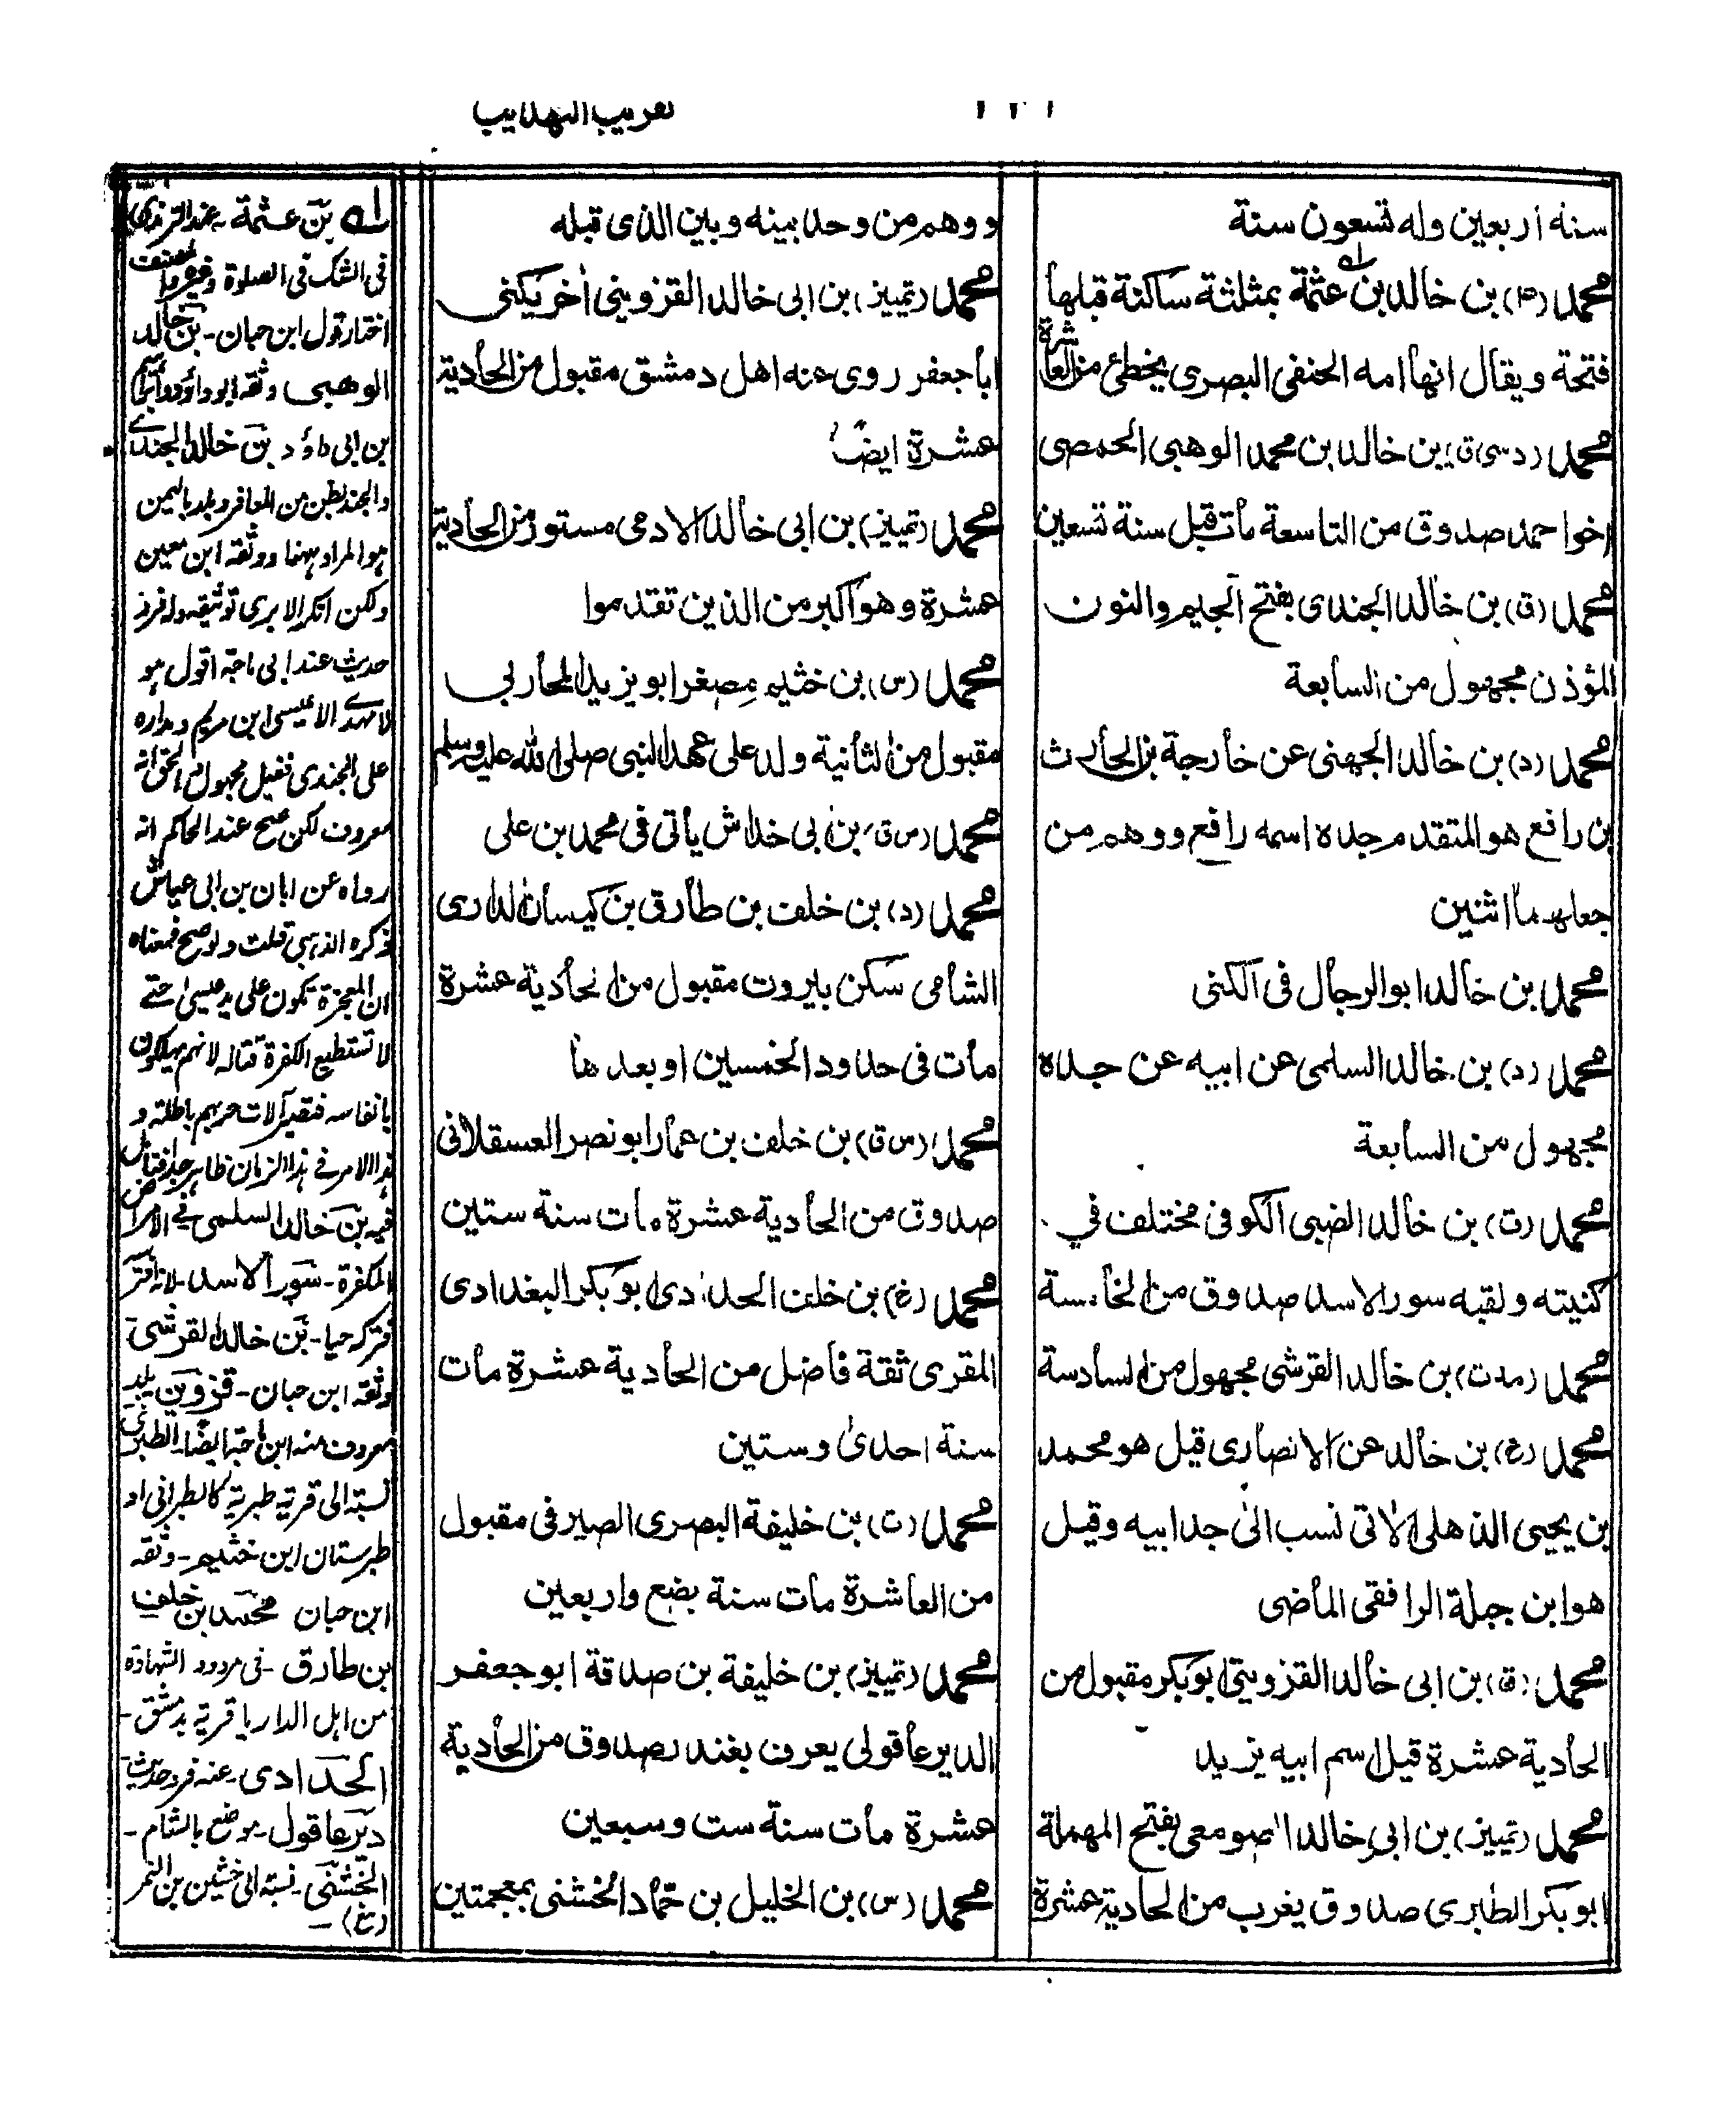 تقريب التهذيب
سنة اربعين وله تسعون سنة
محمد (۴) بن خالد بن عثمة بمثلثة ساكنة قبلها
فتحة ويقال انها امه الحنفى البصرى يخطئ من العاشرة
محمد (د سى ق) بن خالد بن محمد الوهبى الحمصى
اخو احمد صدوق من التاسعة مات قبل سنة تسعين
محمد (ق) بن خالد الجندى بفتح الجيم والنون
المؤذن مجهول من السابعة
محمد (د) بن خالد الجهنى عن خارجة بن الحارث
بن رافع هو المتقدم جده اسمه رافع ووهم من
جعلهما اثنين
محمد بن خالد ابو الرجال فى الكنى
محمد (د) بن خالد السلمى عن ابيه عن جده
مجهول من السابعة
محمد (ت) بن خالد الضبى الكوفى مختلف في
كنيته ولقبه سور الاسد صدوق من الخامسة
محمد (مد ت) بن خالد القرشى مجهول من السادسة
محمد (خ) بن خالد عن الانصارى قيل هو محمد
بن يحيى الذهلى الاتى نسب الى جد ابيه وقيل
هو ابن جبلة الرافقى الماضى
محمد (ق) بن ابى خالد القزوينى ابو بكر مقبول من
الحادية عشرة قيل اسم ابيه يزيد
محمد (تمييز) بن ابى خالد الصومعى بفتح المهملة
ابو بكر الطبرى صدوق يغرب من الحادية عشرة
ووهم من وحد بينه وبين الذى قبله
محمد (تمييز) بن ابى خالد القزوينى اخر يكنى
ابا جعفر روى عنه اهل دمشق مقبول من الحادية
عشرة ايضا
محمد (تمييز) بن ابى خالد الادمى مستور من الحادية
عشرة وهو اكبر من الذين تقدموا
محمد (س) بن خثيم مصغر ابو يزيد المحاربى
مقبول من الثانية ولد على عهد النبى صلى الله عليه وسلم
محمد (س ق) بن ابى خداش ياتى فى محمد بن على
محمد (د) بن خلف بن طارق بن كيسان الدارى
الشامى سكن بيروت مقبول من الحادية عشرة
مات فى حدود الخمسين او بعدها
محمد (س ق) بن خلف بن عمار ابو نصر العسقلانى
صدوق من الحادية عشرة مات سنة ستين
محمد (خ) بن خلف الحدادى ابو بكر البغدادى
المقرى ثقة فاضل من الحادية عشرة مات
سنة احدى وستين
محمد (ت) بن خليفة البصرى الصيرفى مقبول
من العاشرة مات سنة بضع واربعين
محمد (تمييز) بن خليفة بن صدقة ابو جعفر
الدير عاقولى يعرف بغندر صدوق من الحادية
عشرة مات سنة ست وسبعين
محمد (س) بن الخليل بن حماد الخشنى بمعجمتين
له بن عثمة - عند الترمذى
فى الشك فى الصلوة وغيره المصنف
اختار قول ابن حبان - بن خالد
الوهبى وثقه ابو داؤد
بن ابى داؤد بن خالد الجندى
والجند بطن من المعافر وبلد باليمن
هو المراد ههنا ووثقه ابن معين
ولكن انكر الابرى توثيقه وله فرد
حديث عند ابى ماجة اقول هو
لا مهدى الا عيسى ابن مريم ومداره
على الجندى فقيل مجهول والحق انه
معروف لكن صح عند الحاكم انه
رواه عن ابان بن ابى عياش
ذكره الذهبى قلت ولو صح فمعناه
ان المعجزة يكون على يد عيسى حتى
لا تستطيع الكفرة قتاله لانهم يهلكون
بانفاسه فتصير آلات حربهم باطلة و
هذا الامر فى هذا الزمان ظاهر جدا
فيه بن خالد السلمى - فى الامراض
المكفرة - سور الاسد - لانه افترسه
فتركه حيا - بن خالد القرشى
وثقه ابن حبان - قزوين بلد
معروف منه ابن ماجة ايضا - الطبرى
نسبة الى قرية طبرية كالطبرانى او
طبرستان ابن خثيم - وثقه
ابن حبان محمد بن خلف
بن طارق - فى مردود الشهادة
من اهل الداريا قرية بدمشق -
الحدادى - عنه فرد حديث
دير عاقول - موضع بالشام -
الخشنى - نسبة الى خشين بن النمر
(تخ) -